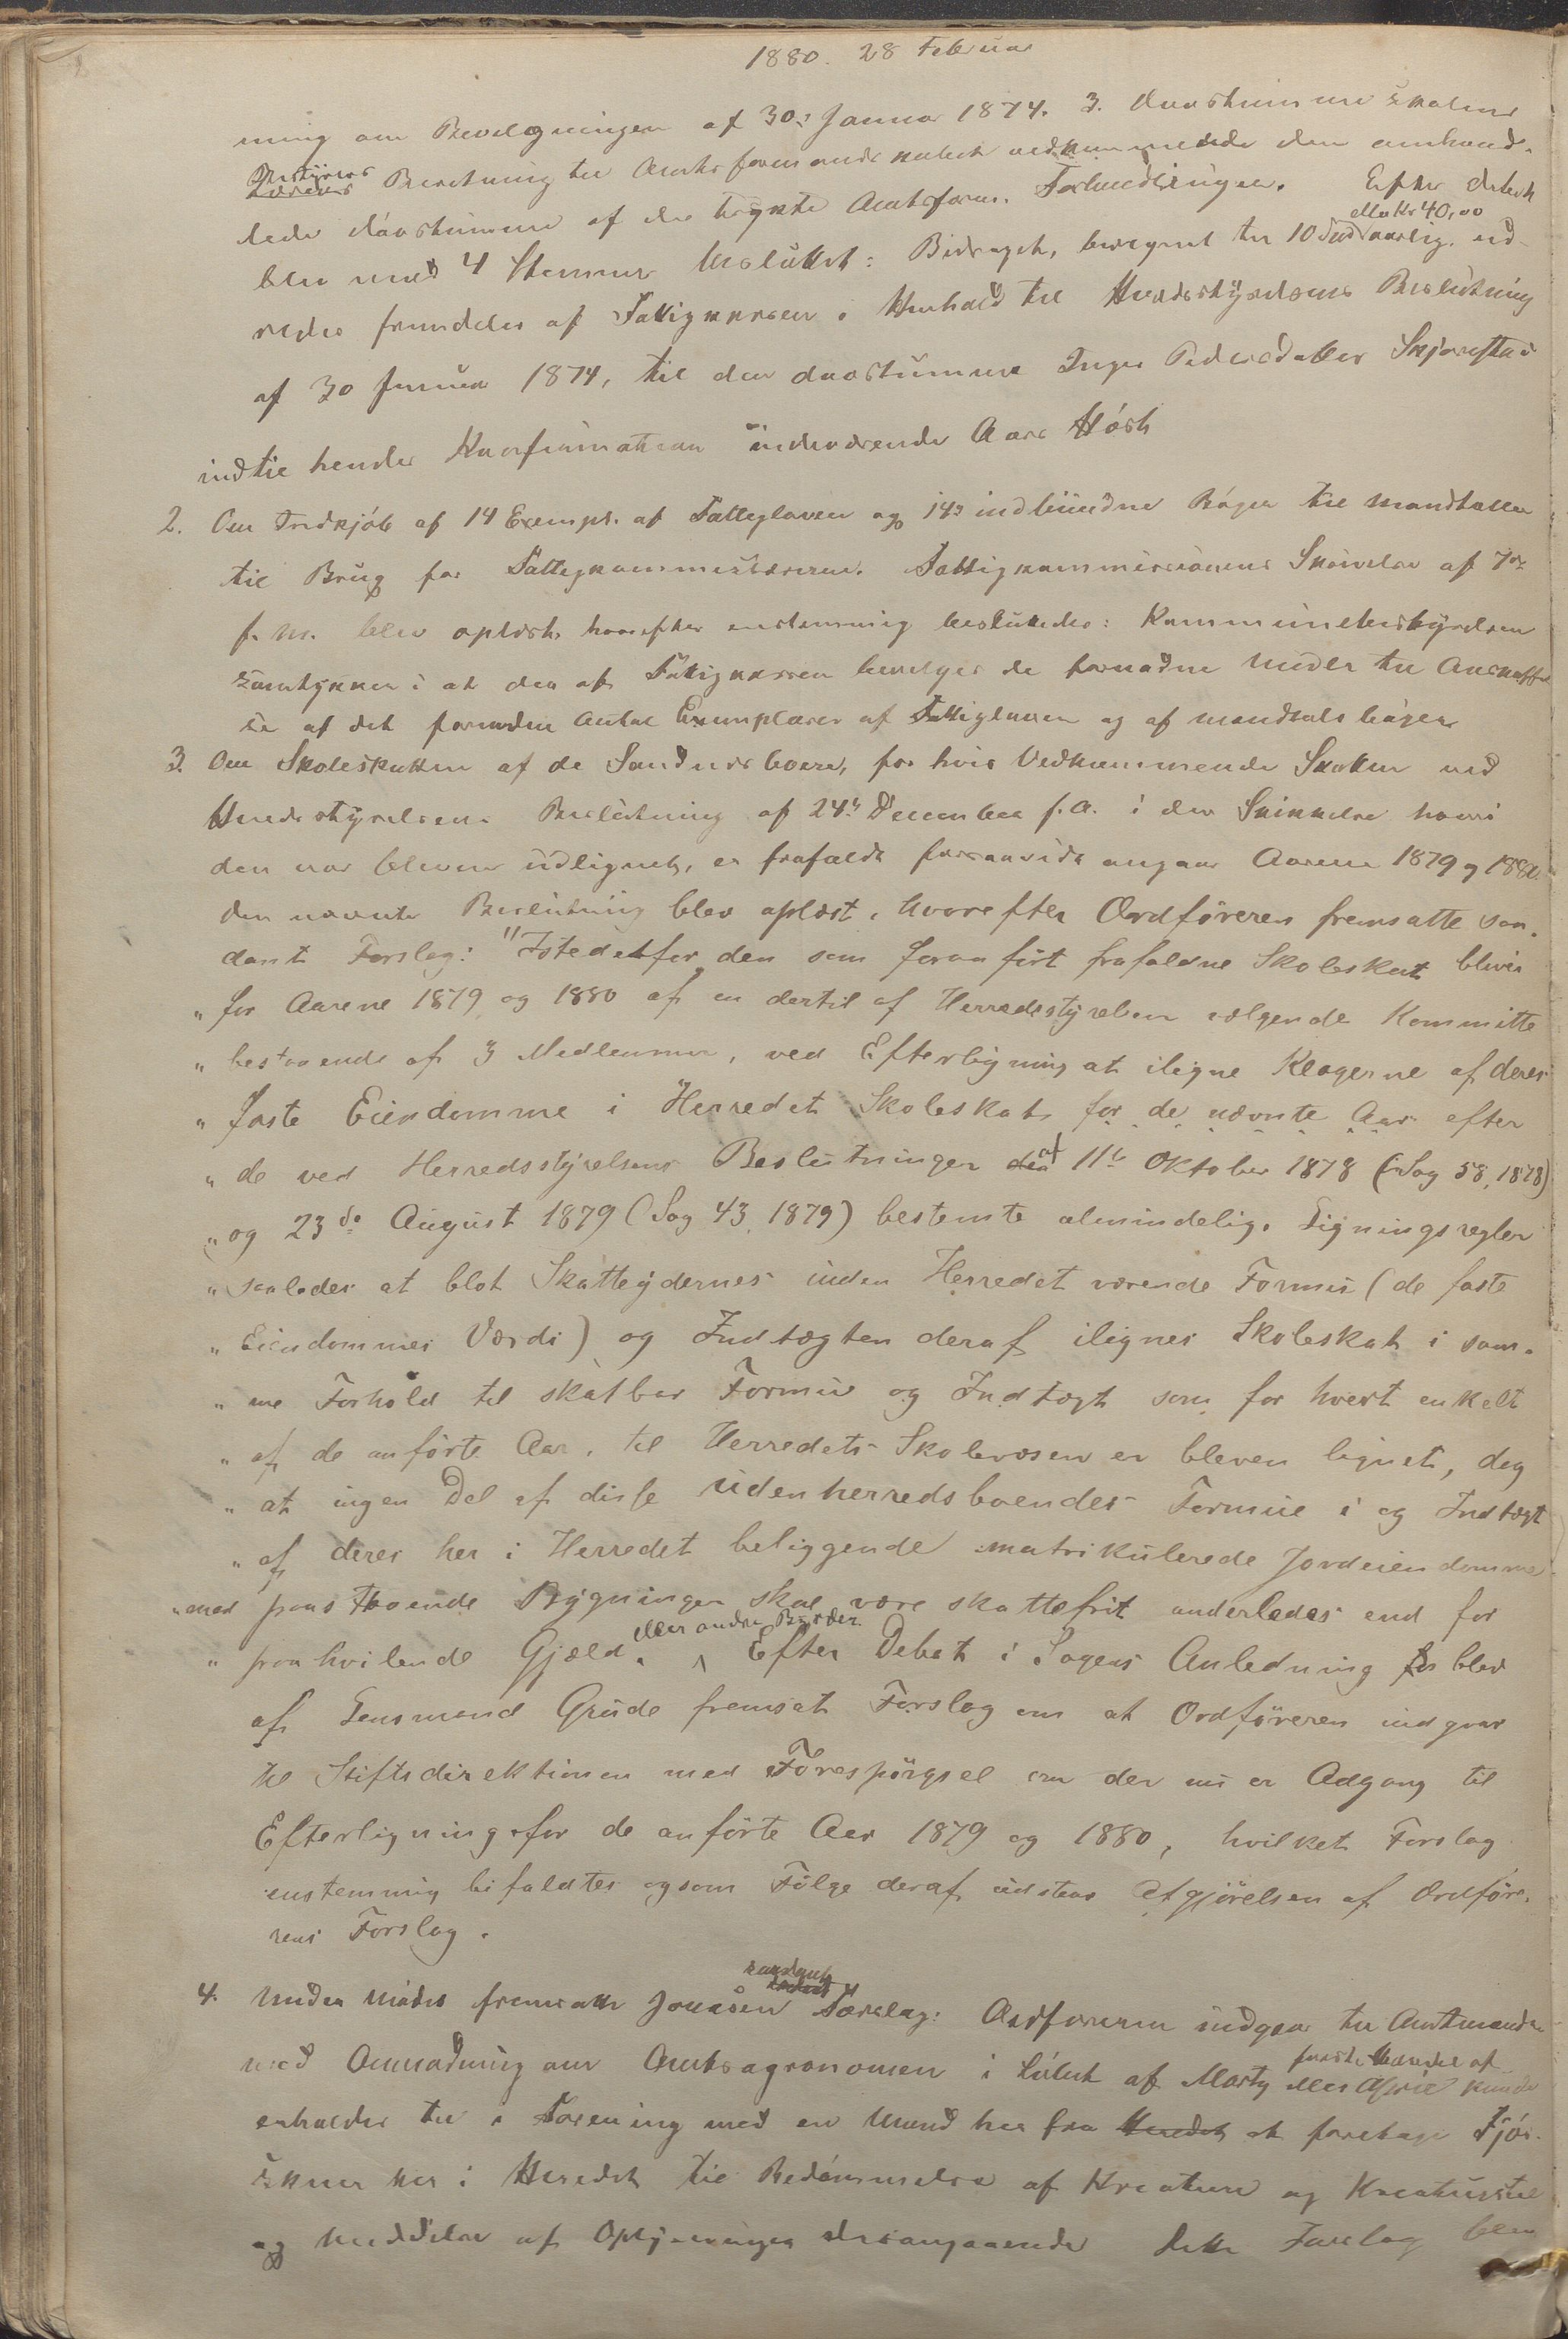 1880. 28 Februar
ning om Bevilgningen af 30: Januar 1874. 3. Døvstumme skolens
Bestyrers Beretning til Amtsformandskabet vedkommende den omhand-
lede døvstumme af de trykte Amtsform. Forhandlinger. Efter debat
eller Kr 40,00
blev med 4 Stemmer besluttet: Bidraget, beregnet til 10 Spd aarlig, ud-
redes fremdeles af Fattigkassen i Henhold til Herredsstyrelsens Beslutning
af 30 Januar 1874, til den døvstumme Inger Pedersdatter Skjørestad
indtil hendes Konfirmation indeværende Aars Høst
2. Om Indkjøb af 14 Exempl. af Fattigloven og 14 indbundne Bøger til Mandtaller
til Brug for Fattigkommissærerne. Fattigkommissionens Skrivelse af 7de
f. M. blev oplæst, hvorefter enstemmig besluttedes: Kommunebestyrelsen
samtykker i at der af Fattigkassen bevilges de fornødne Midler til Anskaffel-
se af det fornødne Antal Exemplarer af Fattigloven og af mandtals bøger
3. Om Skoleskatten af de Sandnesboere, for hvis Vedkommende Skatten ved
Herredsstyrelsens Beslutning af 24de December f. A. i den Skikkelse hvori
den var bleven udlignet, er frafaldt forsaavidt angaar Aarene 1879 og 1880.
den nævnte Beslutning blev oplæst, hvorefter Ordføreren fremsatte saa-
dant Forslag: "Istedetfor den som foranført frafaldne Skoleskat bliver
" for Aarene 1879 og 1880 af en dertil af Herredsstyrelsen vælgende Kommitte
" bestaaende af 3 Medlemmer, ved Efterligning at iligne Klagerne af deres
" faste Eiendomme i Herredet Skoleskat for de nævnte Aar efter
" de ved Herredsstyrelsens Beslutninger af 11te Oktober 1878 (Sag 58, 1878)
" og 23de August 1879 (Sag 43, 1879) bestemte almindelig. Ligningsregler
" saaledes at blot Skatteydernes inden Herredet værende Formue (de faste
" Eiendommes Værdi) og Indtægten deraf ilignes Skoleskat i sam-
" me Forhold til skatbar Formue og Indtægt som for hvert enkelt
" af de anførte Aar, til Herredets Skolevæsen er bleven lignet, dog
" at ingen Del af disse udenherredsboendes Formue i og Indtægt
" af deres her i Herredet beliggende matrikulerede Jordeiendomme
" med paastaaende Bygninger skal være skattefrit anderledes end for
eller andre Byrder.
" paahvilende Gjæld. Efter Debat i Sagens Anledning blev
af Lensmand Grude fremsat Forslag om at Ordføreren indgaar
til Stiftsdirektionen med Forespørgsel om der nu er Adgang til
Efterligning for de anførte Aar 1879 og 1880, hvilket Forslag
enstemmig bifaldtes og som Følge deraf udstaar Afgjørelsen af Ordføre-
rens Forslag.
saadant
4. Under Mødet fremsatte Jonasen Forslag: Ordføreren indgaar til Amtmanden
første Halvdel af
med Anmodning om Amtsagronomen i Løbet af Marts eller April kunde
erholdes til i Forening med en Mand her fra at foretage Fjøs-
skuer her i Herredet til Bedømmelse af Kreaturer og Kreaturstel
og Meddelelse af Oplysninger desangaaende dette Forslag blev